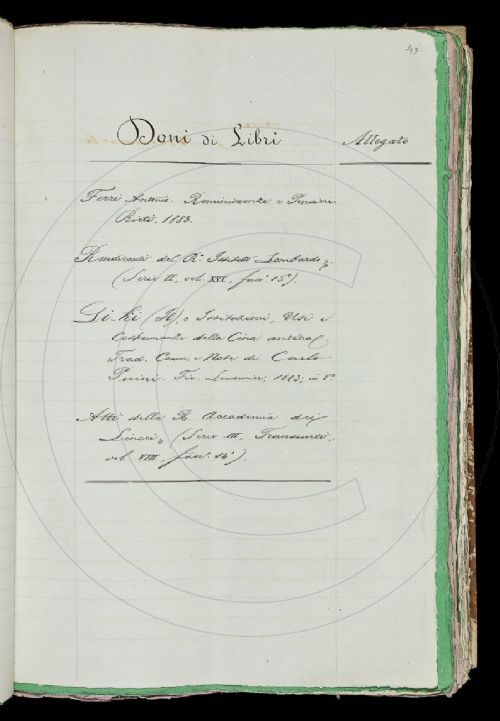 343
Doni di Libri
Allegato
Ferri Antonio. Reminiscenze e Pensieri.
Rieti, 1883.
Rendiconti del R.° Istituto Lombardo,
(Serie II, vol. XVI, fasc.° 15°).
Li-Ki (Il), o Istituzioni, Usi e
Costumanze della Cina antica,
Trad. Comm. e Note di Carlo
Puini. Fir. Lemonnier, 1883, in 8°.
Atti della R. Accademia dei
Lincei, (Serie III, Transunti,
vol. VIII, fasc.° 14°).